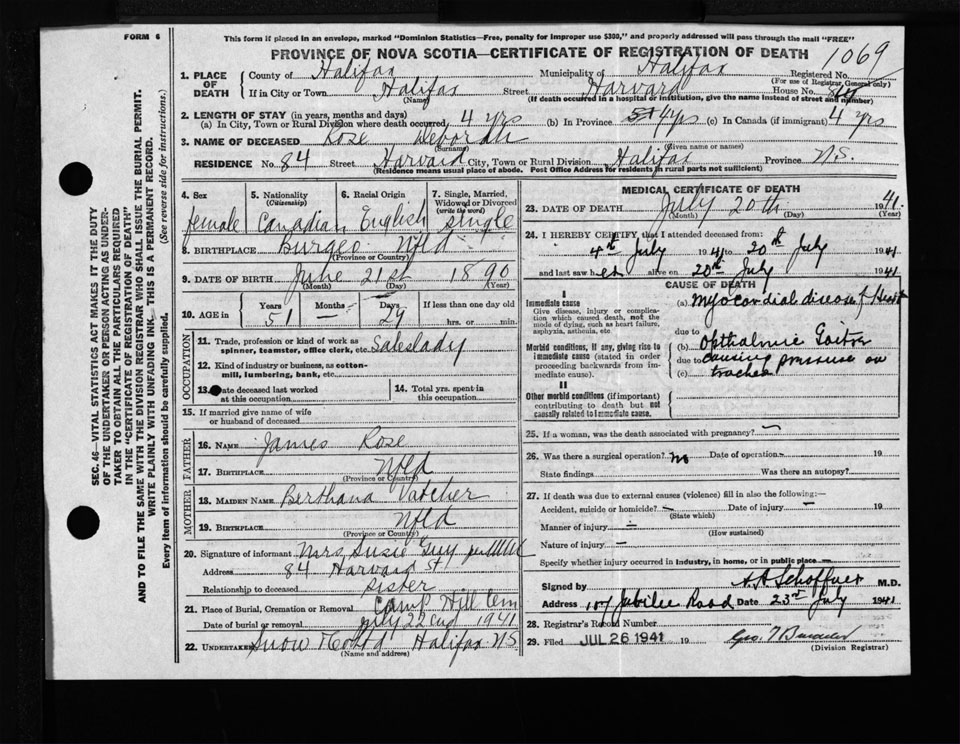 FORM 6
This form if placed in an envelope, marked "Dominion Statistics—Free, penalty for improper use $300," and properly addressed will pass through the mail "FREE"
PROVINCE OF NOVA SCOTIA—CERTIFICATE OF REGISTRATION OF DEATH
1069
1. PLACE OF DEATH County of Halifax Municipality of Halifax Registered No.
(For use of Registrar General only)
If in City or Town Halifax Street Harvard House No. 84
(Name) (If death occurred in a hospital or institution, give the name instead of street and number)
2. LENGTH OF STAY (in years, months and days)
(a) In City, Town or Rural Division where death occurred 4 yrs (b) In Province 4 yrs (c) In Canada (if immigrant) 4 yrs
3. NAME OF DECEASED Rose Deborah
(Surname) (Given name or names)
RESIDENCE No. 84 Street Harvard City, Town or Rural Division Halifax Province N.S.
(Residence means usual place of abode. Post Office Address for residents in rural parts not sufficient)
4. Sex 5. Nationality (Citizenship) 6. Racial Origin 7. Single, Married, Widowed or Divorced (write the word)
female Canadian English single
8. BIRTHPLACE Burgeo Nfld
(Province or Country)
9. DATE OF BIRTH June 21st 1890
(Month) (Day) (Year)
10. AGE in Years Months Days If less than one day old
51 — 29 hrs. or min.
OCCUPATION
11. Trade, profession or kind of work as spinner, teamster, office clerk, etc. Saleslady
12. Kind of industry or business, as cotton-mill, lumbering, bank, etc.
13. Date deceased last worked at this occupation
14. Total yrs. spent in this occupation
15. If married give name of wife or husband of deceased
FATHER
16. NAME James Rose
17. BIRTHPLACE Nfld
(Province or Country)
MOTHER
18. MAIDEN NAME Berthana Vatcher
19. BIRTHPLACE Nfld
(Province or Country)
20. Signature of informant Mrs Susie Guy per
Address 84 Harvard St
Relationship to deceased Sister
21. Place of Burial, Cremation or Removal Camp Hill Cem
Date of burial or removal July 22nd 1941
22. UNDERTAKER Snow & Co Ltd Halifax NS
(Name and address)
MEDICAL CERTIFICATE OF DEATH
23. DATE OF DEATH July 20th 1941
(Month) (Day) (Year)
24. I HEREBY CERTIFY, that I attended deceased from:
4th July 1941 to 20th July 1941
and last saw her alive on 20th July 1941
CAUSE OF DEATH
I
Immediate cause
Give disease, injury or complication which caused death, not the mode of dying, such as heart failure, asphyxia, asthenia, etc.
(a) Myocardial disease of Heart
due to
Morbid conditions, if any, giving rise to immediate cause (stated in order proceeding backwards from immediate cause).
(b) Opthalmic Goitre
due to causing pressure on
(c) trachea
II
Other morbid conditions (if important) contributing to death but not causally related to immediate cause.
25. If a woman, was the death associated with pregnancy? —
26. Was there a surgical operation? no Date of operation — 19
State findings Was there an autopsy?
27. If death was due to external causes (violence) fill in also the following:—
Accident, suicide or homicide? — Date of injury — 19
(State which)
Manner of injury —
(How sustained)
Nature of injury —
Specify whether injury occurred in Industry, in home, or in public place
Signed by A.A. Schaffner M.D.
Address 107 Jubilee Road Date 23rd July 1941
28. Registrar's Record Number
29. Filed JUL 26 1941 19
(Division Registrar)
SEC. 46—VITAL STATISTICS ACT MAKES IT THE DUTY
OF THE UNDERTAKER OR PERSON ACTING AS UNDER-
TAKER TO OBTAIN ALL THE PARTICULARS REQUIRED
IN THE "CERTIFICATE OF REGISTRATION OF DEATH"
AND TO FILE THE SAME WITH THE DIVISION REGISTRAR WHO SHALL ISSUE THE BURIAL PERMIT.
WRITE PLAINLY WITH UNFADING INK—THIS IS A PERMANENT RECORD.
Every item of information should be carefully supplied. (See reverse side for instructions.)